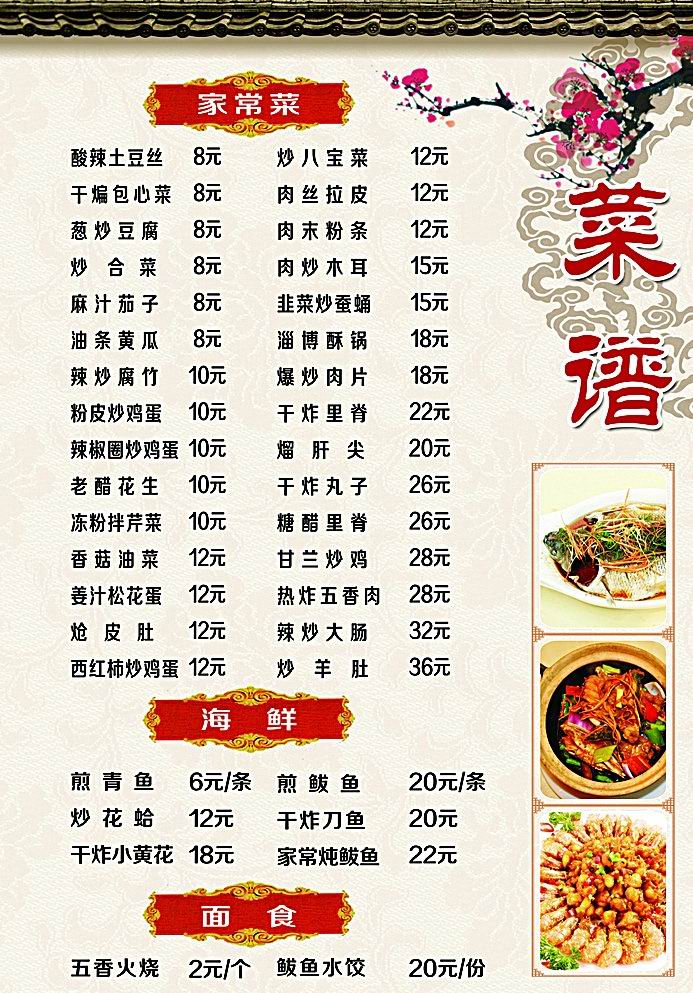 家常菜
酸辣土豆丝 8元 炒八宝菜 12元
干煸包心菜 8元 肉丝拉皮 12元
葱炒豆腐 8元 肉末粉条 12元
炒合菜 8元 肉炒木耳 15元
麻汁茄子 8元 韭菜炒蚕蛹 15元
油条黄瓜 8元 淄博酥锅 18元
辣炒腐竹 10元 爆炒肉片 18元
粉皮炒鸡蛋 10元 干炸里脊 22元
辣椒圈炒鸡蛋 10元 熘肝尖 20元
老醋花生 10元 干炸丸子 26元
冻粉拌芹菜 10元 糖醋里脊 26元
香菇油菜 12元 甘兰炒鸡 28元
姜汁松花蛋 12元 热炸五香肉 28元
炝皮肚 12元 辣炒大肠 32元
西红柿炒鸡蛋 12元 炒羊肚 36元
海鲜
煎青鱼 6元/条 煎鲅鱼 20元/条
炒花蛤 12元 干炸刀鱼 20元
干炸小黄花 18元 家常炖鲅鱼 22元
面食
五香火烧 2元/个 鲅鱼水饺 20元/份
菜谱